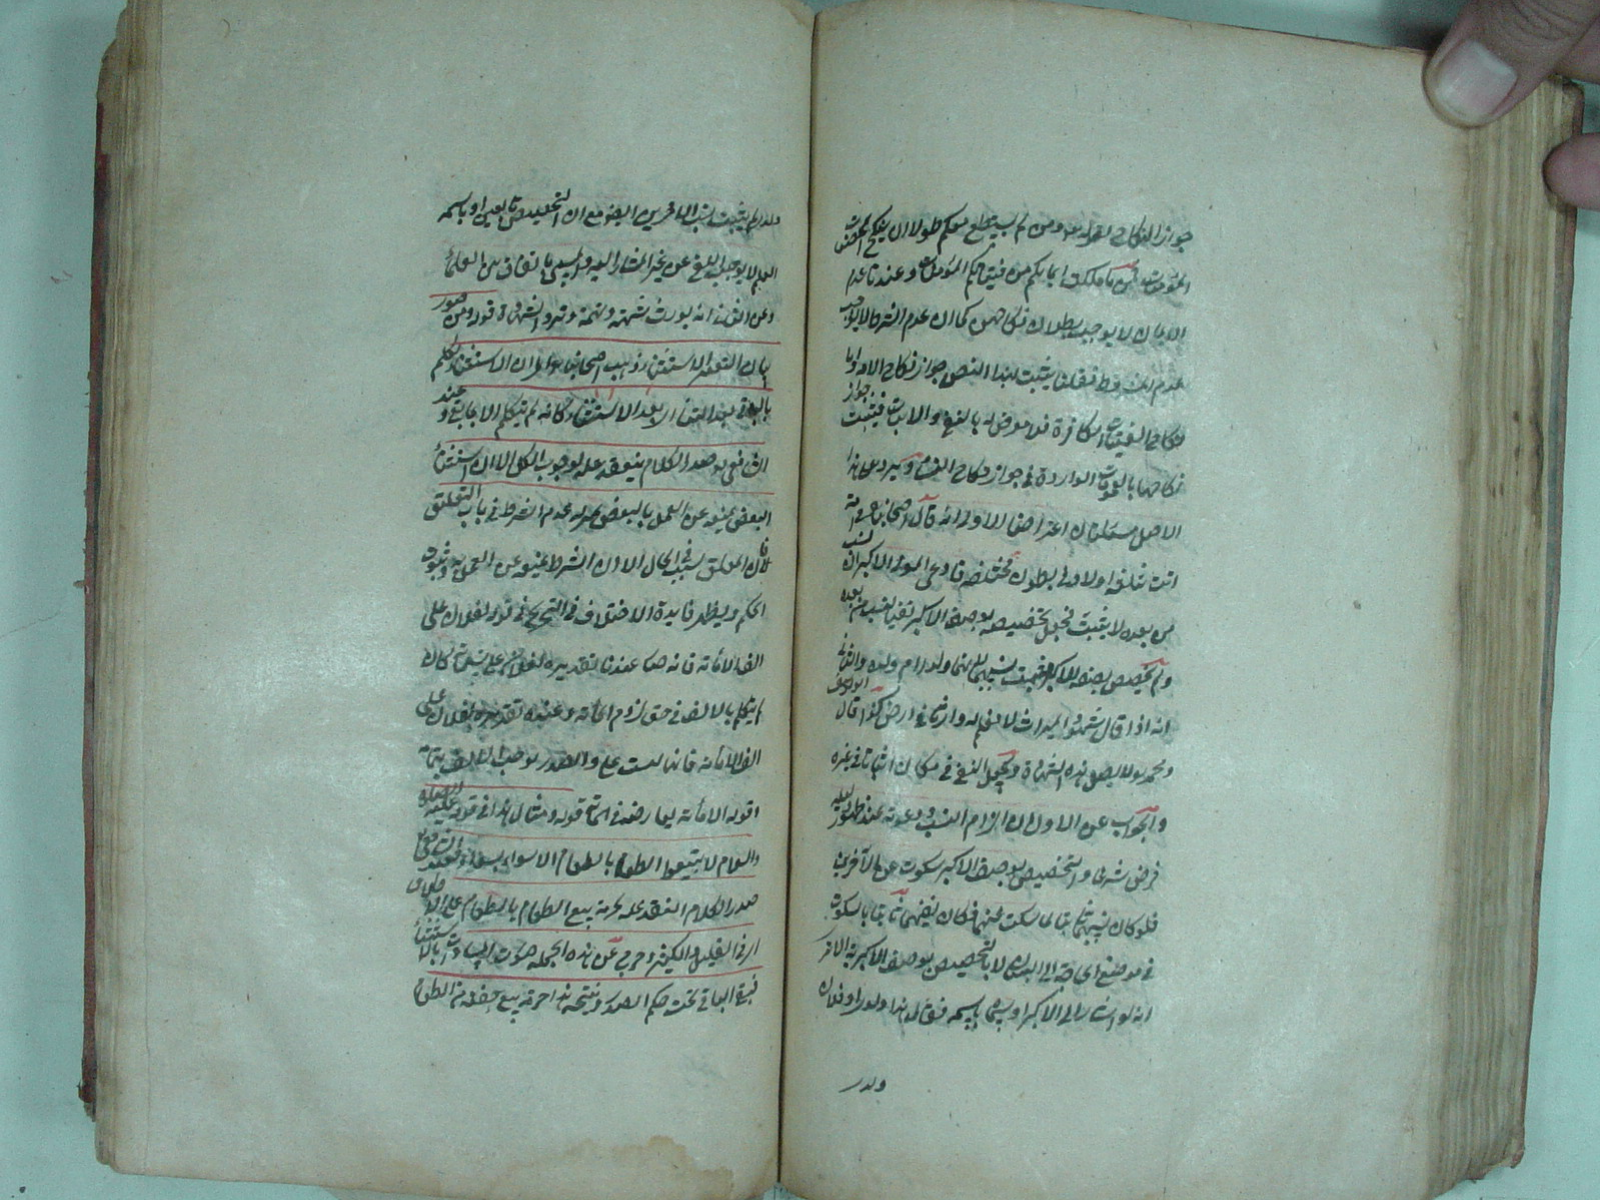 جواز النكاح لقوله تعالى ومن لم يستطع منكم طولا ان ينكح المحصنات
المؤمنات فمن ما ملكت ايمانكم من فتياتكم المؤمنات وعندنا عدم
الايمان لا يوجب بطلان نكاحهن كما ان عدم الشرط لا يوجب
عدم المشروط فقلنا يثبت بهذا النص جواز نكاح الاماء
نكاح الفتيات الكافرة بالنفي والاثبات فيثبت جواز
نكاحها بالعمومات الواردة في جواز نكاح النساء ويرد على هذا
الاصل مسئلتان اعتراضا الاولى انه قال اصحابنا في امة
اتت ثلثة اولاد في بطون مختلفة فادعى المولى الاكبر ان نسب
من بعده لا يثبت فجعل تخصيصه بوصف الاكبر نفيا لنسب من بعده
ولم يخصص بصفة الاكبر ثبت نسبهما لانهما ولد ام ولده والثانية
انه اذا قال شهود الميراث لا نعلم له وارثا في ارض كذا قال ابو يوسف
ومحمد لا يقبل هذه الشهادة ويجعل النفي في مكان اثباتا في غيره
والجواب عن الاول ان التزام النسب ودعوته عند ظهور دليله
فرض شرعي والتخصيص بوصف الاكبر سكوت عن الآخرين
فلو كان نسبهما ثابتا لما سكت عنهما فكان نفيهما ثابتا بالسكوت
في موضع الحاجة الى البيان لا بالتخصيص بوصف الاكبرية الا ترى
انه لو اشار الى الاكبر او سماه باسمه فقال هذا ولدي او فلان
ولدي
ولدي لم يثبت نسب الآخرين ايضا مع ان التخصيص بالتعيين او باسمه
العلم لا يوجب النفي عن غير المشار اليه والمسمى باتفاق بين العلماء
وعن الثاني انه يورث شبهة وتهمة وترد الشهادة قوله ومن صور
بيان التغيير الاستثناء ذهب اصحابنا الى ان الاستثناء تكلم
بالباقي بعد الثنيا اي بعد الاستثناء وكانه لم يتكلم الا بما بقي وعند
الشافعي صدر الكلام ينعقد علة لوجوب الكل الا ان استثناء
البعض يمنعه عن العمل بالبعض بمنزلة عدم الشرط في باب التعليق
فان المعلق سبب في الحال الا ان الشرط يمنعه عن العمل وثبوت
الحكم ويظهر فايدة الاختلاف في التخريج في قوله لفلان علي
الف الا مائة فانه صار عندنا تقديره لفلان علي تسعمائة كان
لم يتكلم بالالف في حق لزوم المائة وعنده تقديره لفلان علي
الف الا مائة فانها ليست علي والصدر يوجب الالف بتمامه
وقوله الا مائة يعارضه في المائة قوله ومثال هذا في قوله عليه الصلوة
والسلام لا تبيعوا الطعام بالطعام الا سواء بسواء فعند الشافعي
صدر الكلام انعقد علة لحرمة بيع الطعام بالطعام على الاطلاق
اي في القليل والكثير وخرج عن هذه الجملة صورة المساواة بالاستثناء
فبقي الباقي تحت حكم الصدر ونتيجة هذا حرمة بيع حفنة من الطعام